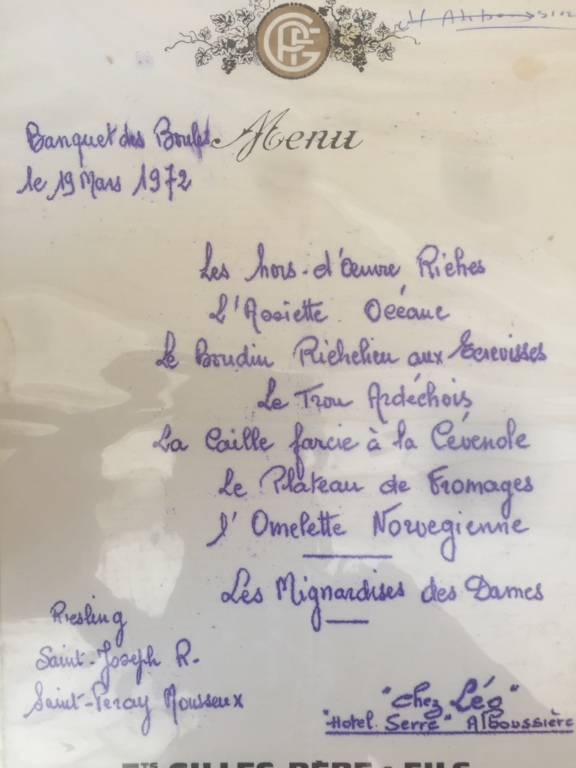 CGPF
Alboussière
Menu
Banquet des Boules
le 19 Mars 1972
Les hors-d'œuvre Riches
L'Assiette Océane
Le Boudin Richelieu aux Ecrevisses
Le Trou Ardéchois
La Caille farcie à la Cévenole
Le Plateau de Fromages
l'Omelette Norvegienne
Les Mignardises des Dames
Riesling
Saint-Joseph R.
Saint-Peray Mousseux
"Chez Léo"
"Hotel Serre" Alboussière
Ets GILLES PÈRE & FILS